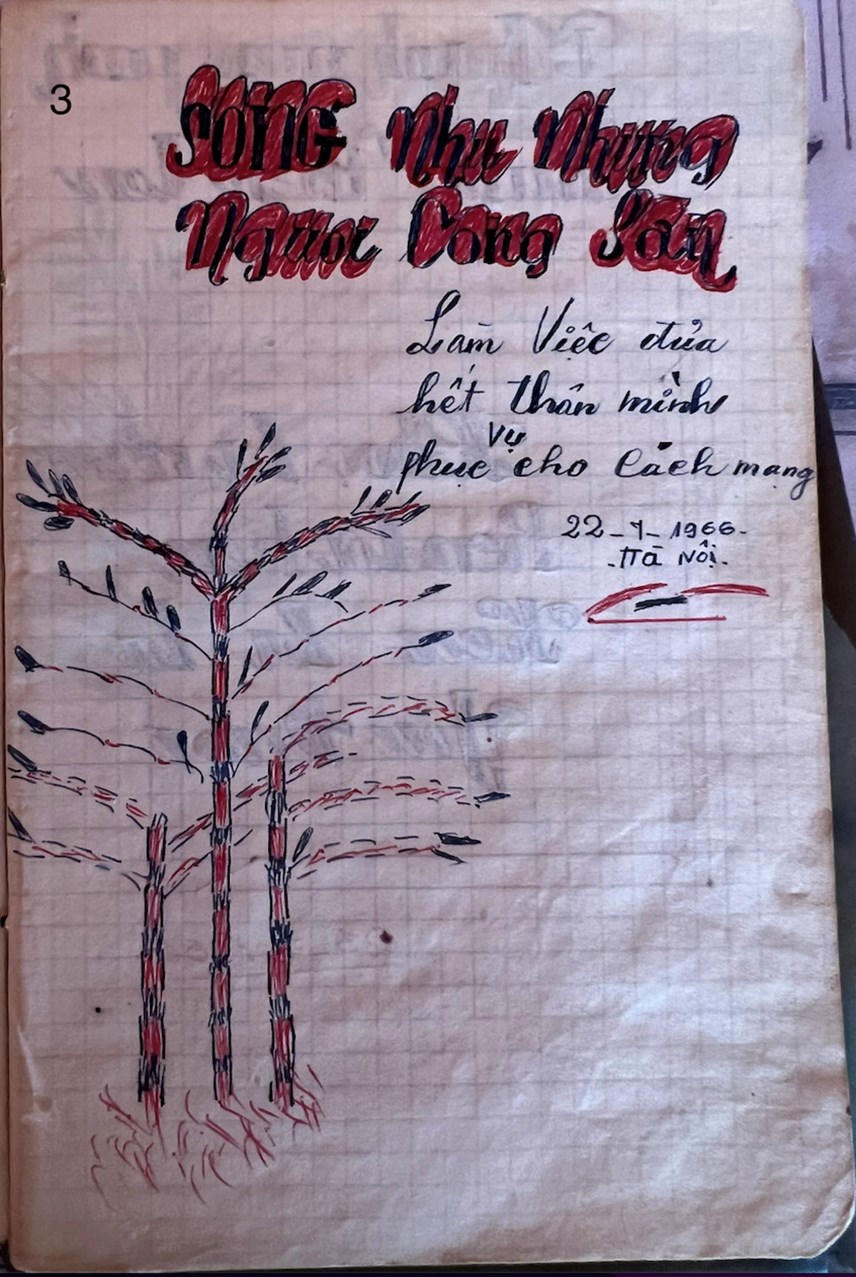 3
SỐNG Như Những
Người Cộng Sản
Làm Việc đửa
hết thân mình
phục vụ cho Cách mạng
22-7-1966-
-Hà Nội.